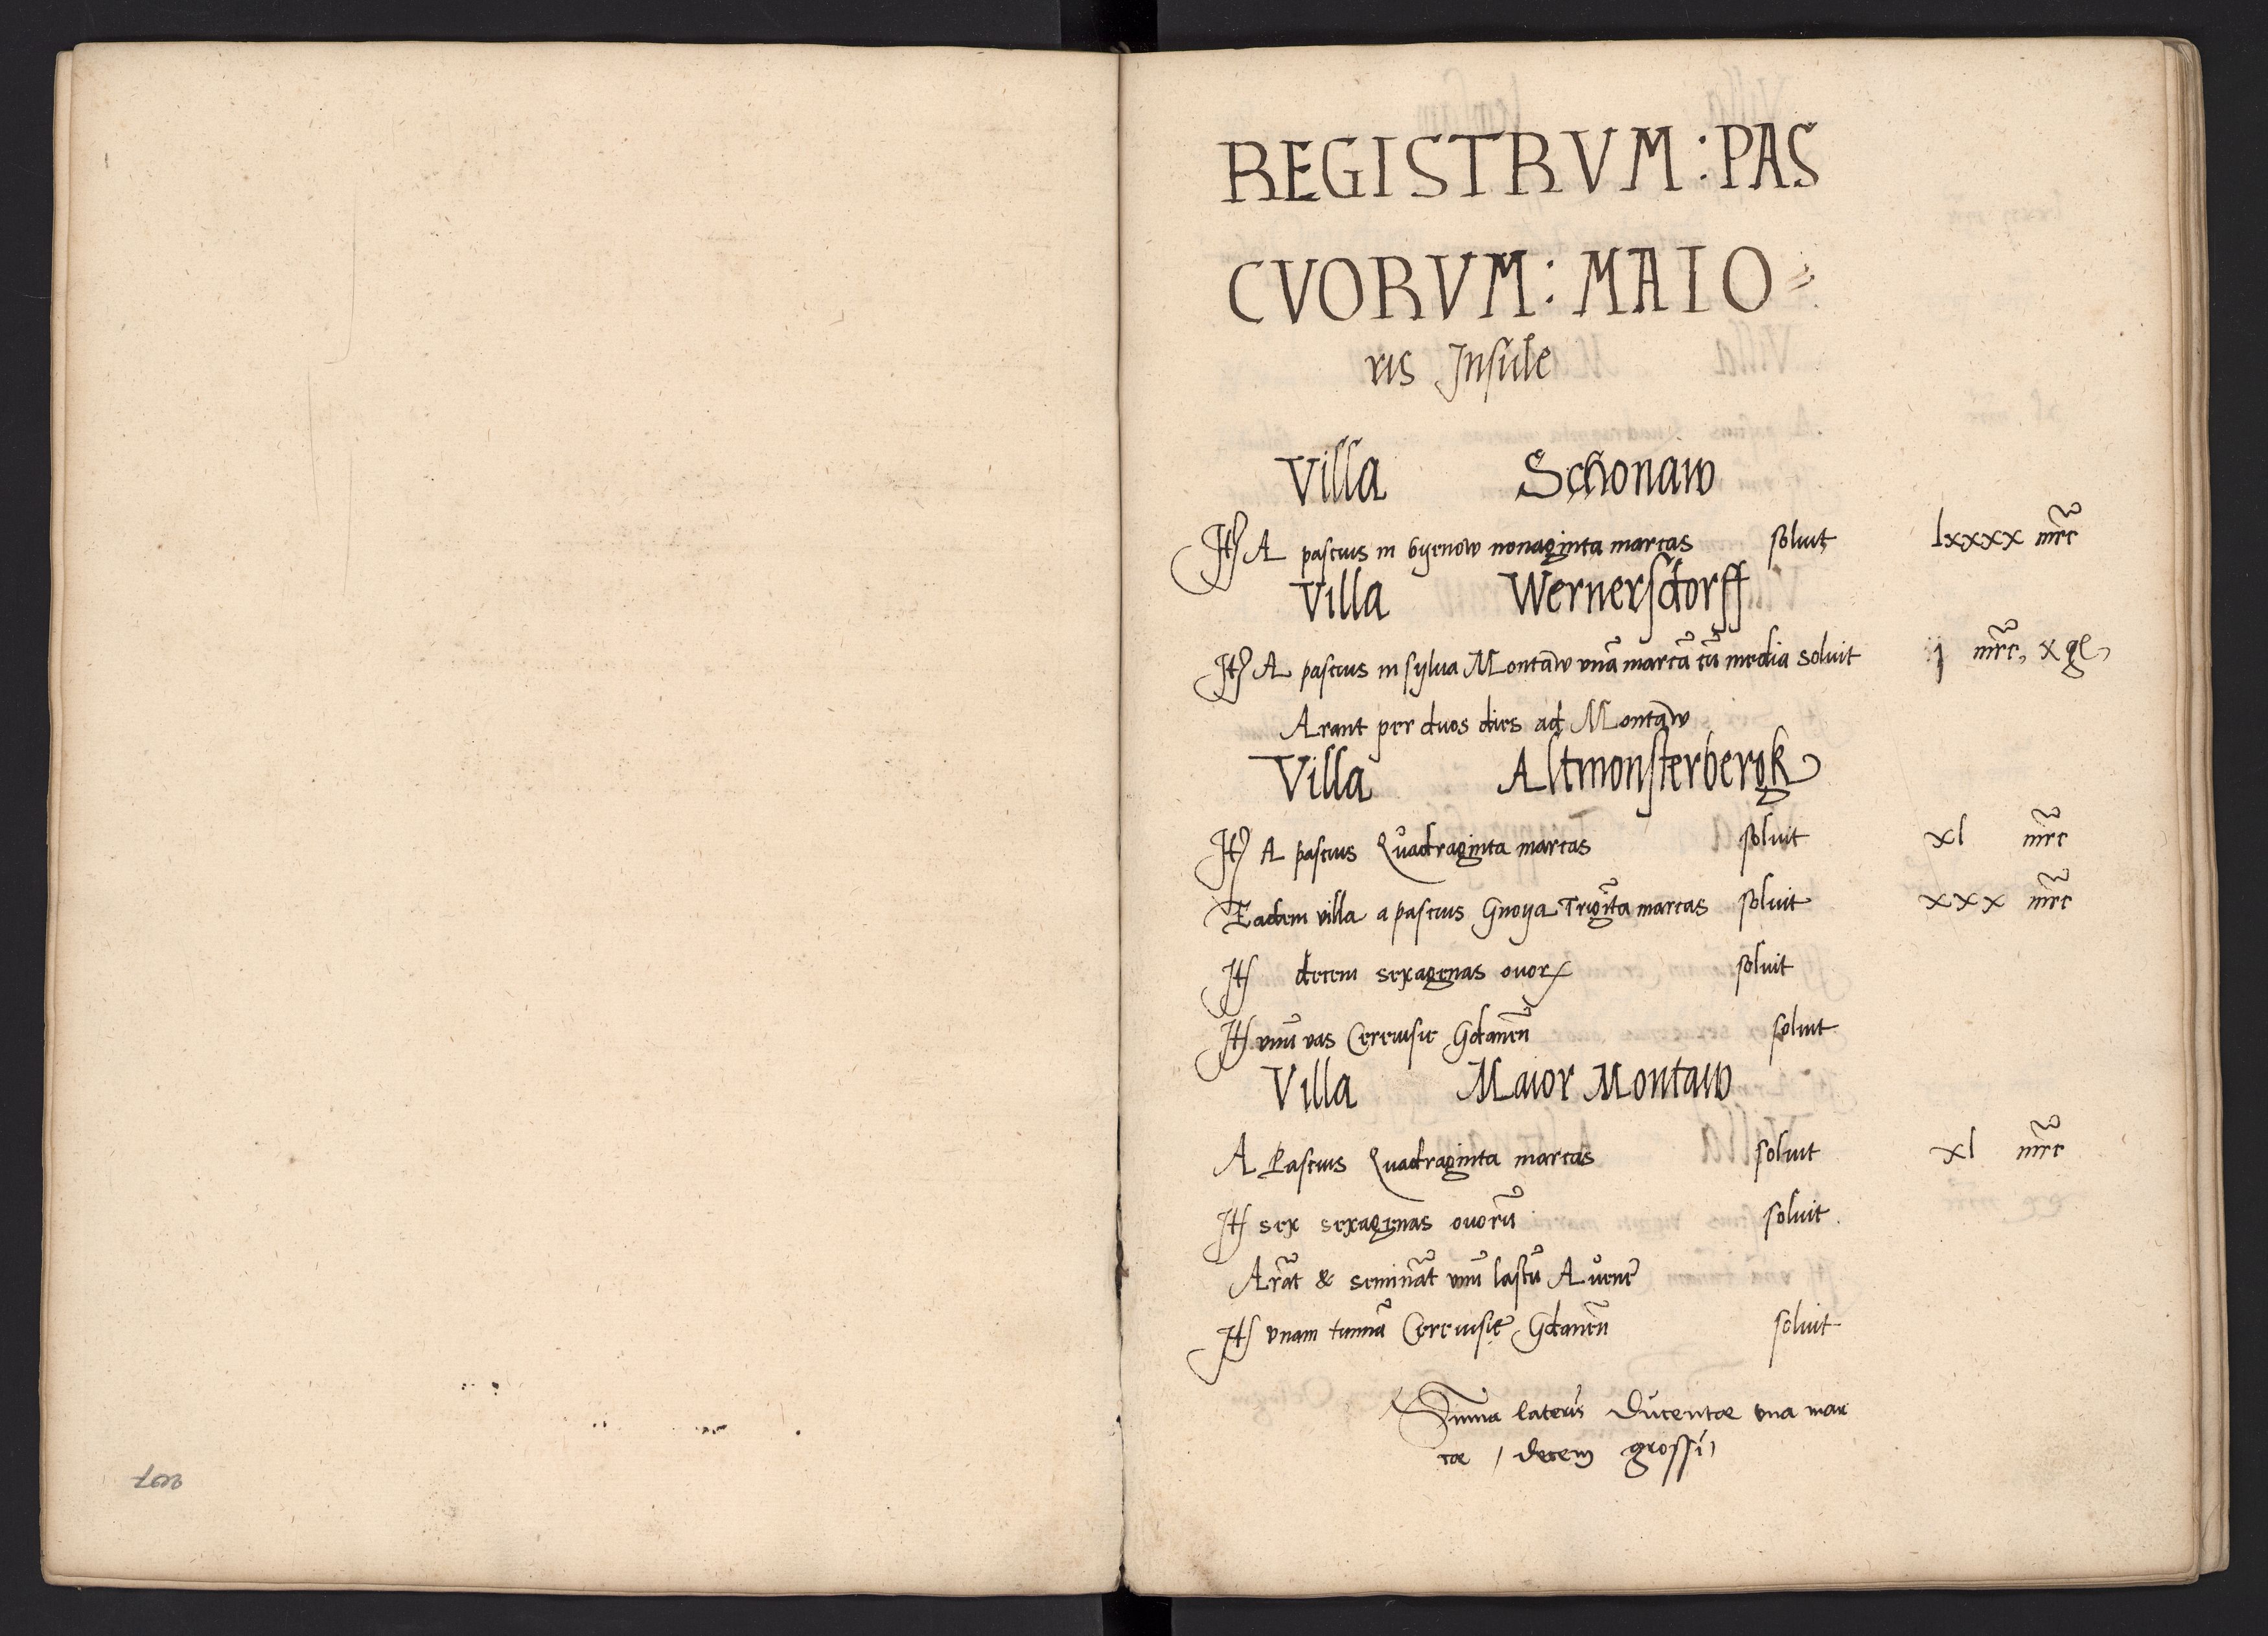 REGISTRVM : PAS
CVORVM : MAIO=
ris Insule
Villa Schonaw
Itẽ A pascuis in byenow nonaginta marcas soluit lxxxx mrc̃
Villa Wernersdorff
Itẽ A pascuis in sylua Montaw vnã marcã cũ media soluit j mrc̃, x g
Arant per duos dies ad Montaw
Villa Altmonsterbergk
Itẽ A pascuis Quadraginta marcas soluit xl mrc̃
Eadem villa a pascuis Gnoya Trigĩta marcas soluit xxx mrc̃
Itẽ decem sexagenas ouorꝝ soluit
Itẽ vnũ vas Cereuisie Gdanen̄ soluit
Villa Maior Montaw
A Pascuis Quadraginta marcas soluit xl mrc̃
Itẽ sex sexagenas ouorũ soluit
Arãt & seminãt vnũ lastũ Auene
Itẽ vnam tunnã Cereuisie Gdanen̄ soluit
Sum̃a lateris Ducentæ vna mar
cæ / decem grossi